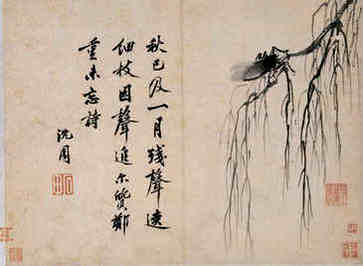 秋已及一月殘聲遶
細枝因聲進尔質鄭
重未忘詩
沈周